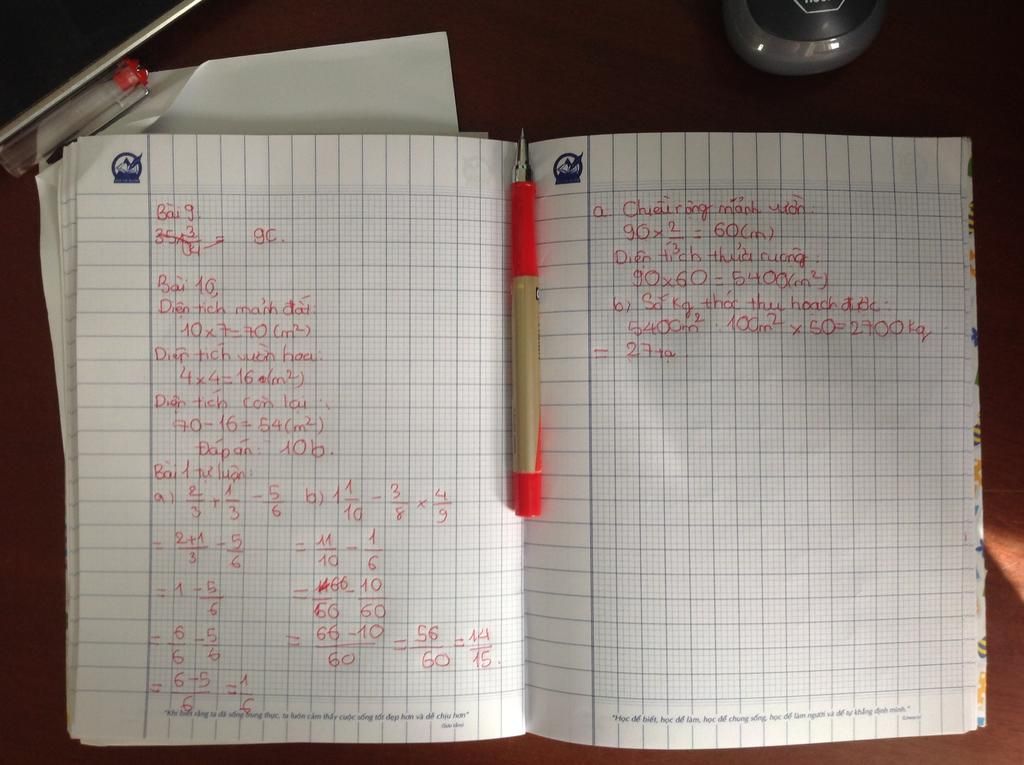 Bài 9
= 9C.
Bài 10,
Diện tích mảnh đất:
10 x 7 = 70 (m²)
Diện tích vườn hoa:
4 x 4 = 16 (m²)
Diện tích còn lại:
70 - 16 = 54 (m²)
Đáp án: 10b.
Bài 1 tự luận:
a) 2/3 + 1/3 - 5/6 b) 1 1/10 - 3/8 x 4/9
= 2+1/3 - 5/6 = 11/10 - 1/6
= 1 - 5/6 = 66/60 - 10/60
= 6/6 - 5/6 = 66-10/60 = 56/60 = 14/15.
= 6-5/6 = 1/6
"Khi biết rằng ta đã sống trung thực, ta luôn cảm thấy cuộc sống tốt đẹp hơn và dễ chịu hơn"
(Sưu tầm)
a. Chiều rộng mảnh vườn:
90 x 2/3 = 60 (m)
Diện tích thửa ruộng:
90 x 60 = 5400 (m²)
b) Số kg thóc thu hoạch được:
5400m² : 100m² x 50 = 2700 kg
= 27 tạ
"Học để biết, học để làm, học để chung sống, học để làm người và để tự khẳng định mình."